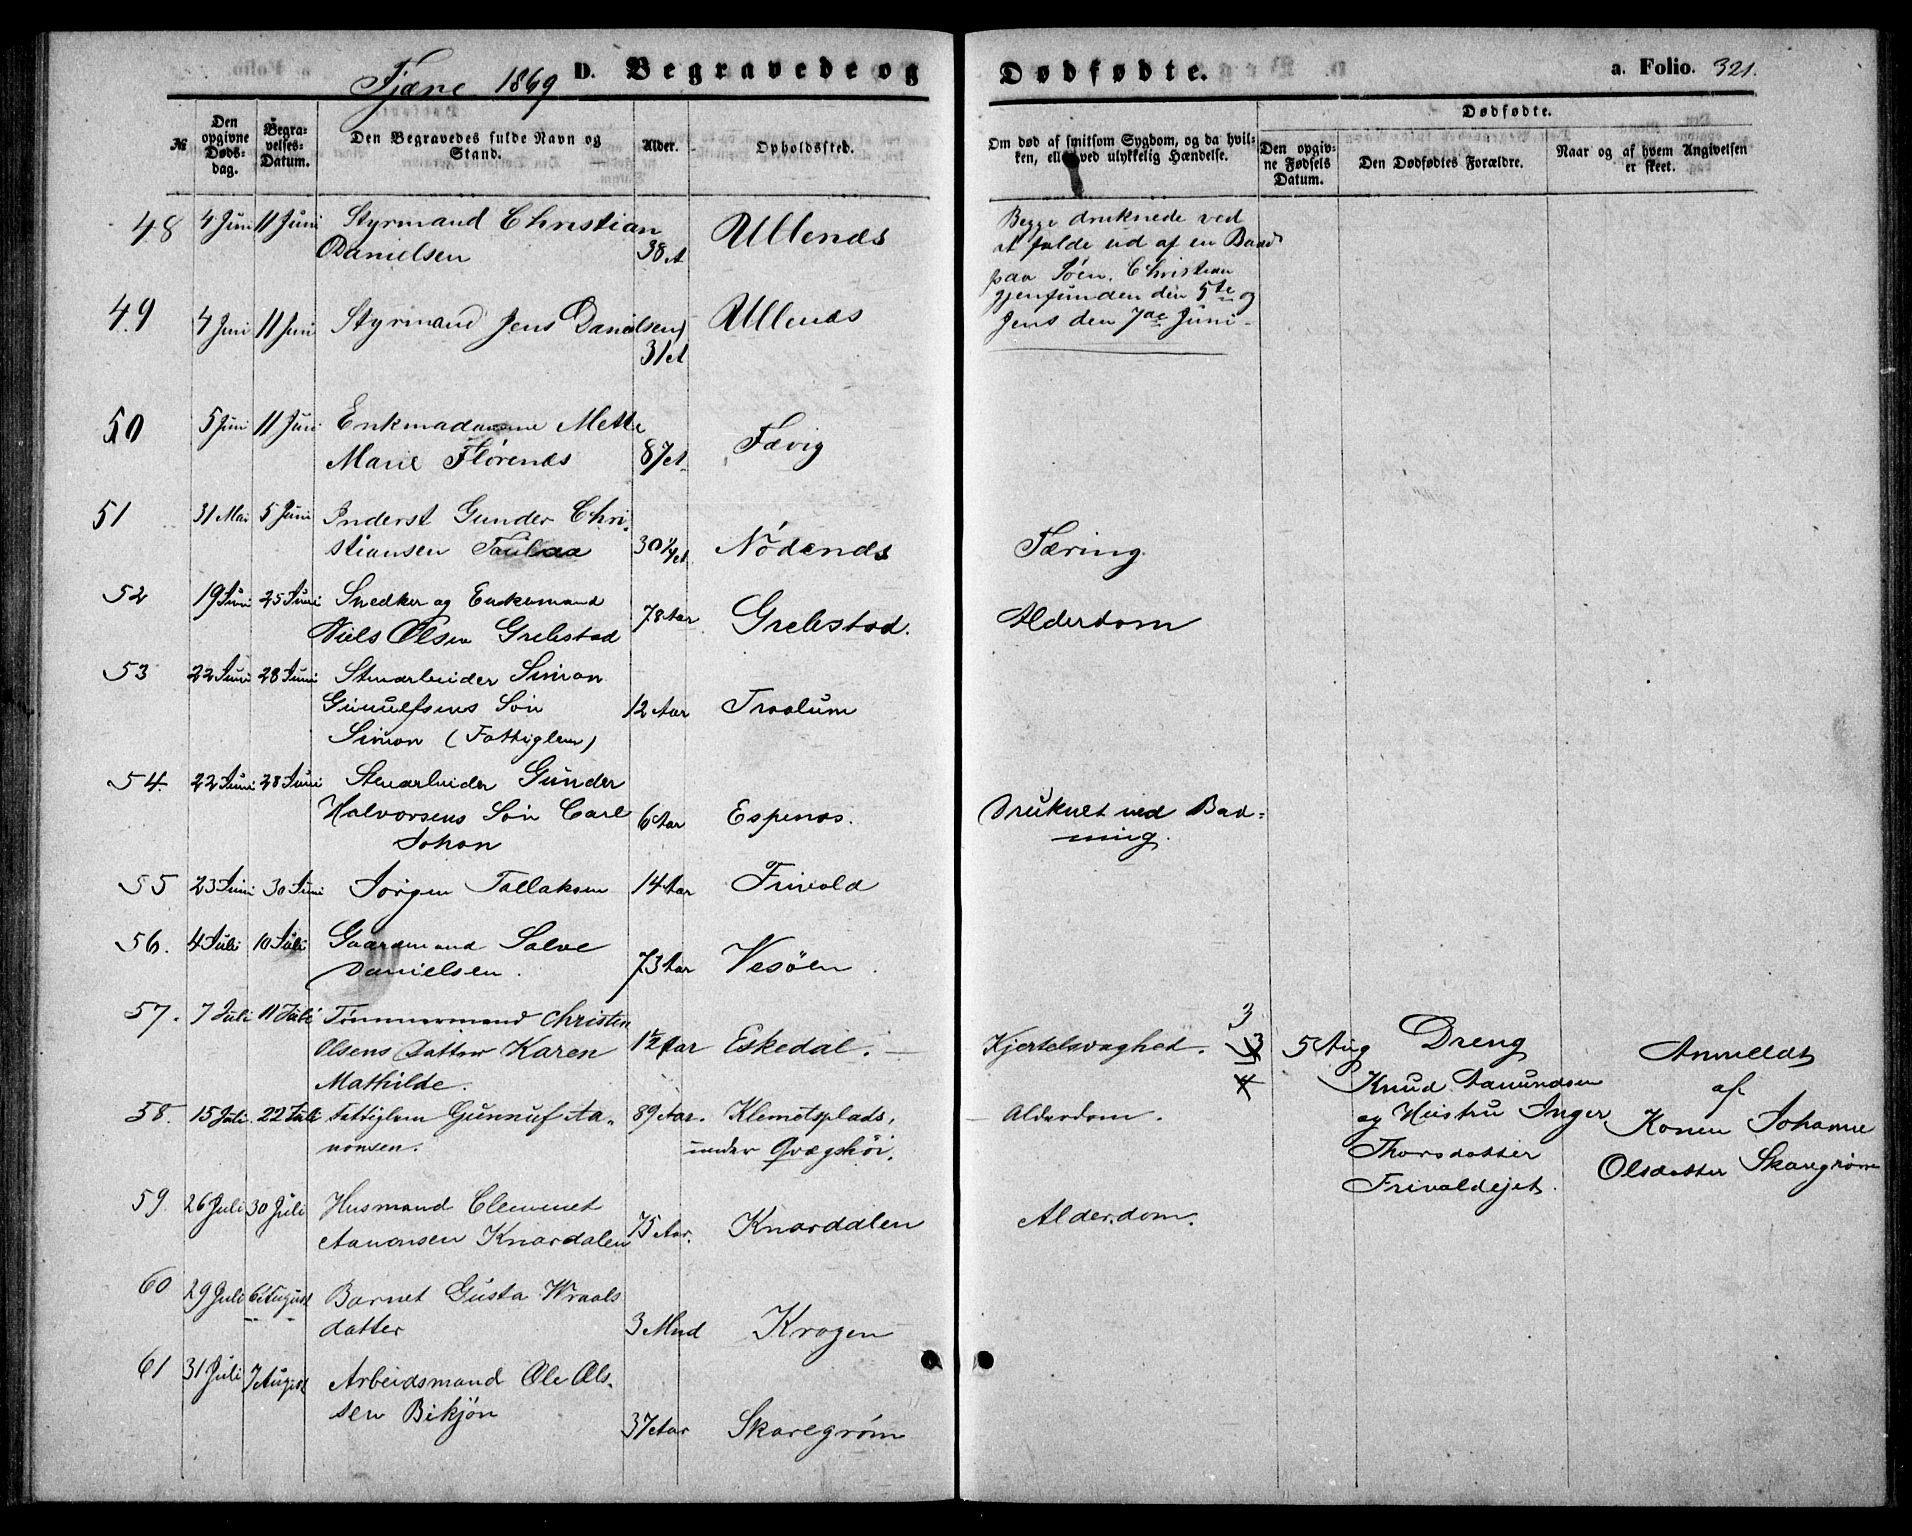 Fjære 1869 D. Begravede og
Dødfødte. a. Folio. 321.
№
Den opgivne Døds-dag.
Begra-velses-Datum.
Den Begravedes fulde Navn og Stand.
Alder.
Opholdssted.
Om død af smitsom Sygdom, og da hvil-
ken, eller ved ulykkelig Hændelse.
Dødfødte.
Den opgiv-ne Fødsels Datum.
Den Dødfødtes Forældre.
Naar og af hvem Angivelsen er skeet.
48 4 Juni 11 Juni Styrmand Christian
Danielsen 38 A Ullenæs
Begge druknede ved
at falde ud af en Baad
paa Söen. Christian
gjenfunden den 5te og
Jens den 7de Juni
49 4 Juni 11 Juni Styrmand Jens Danielsen
31 A Ullenæs
50 5 Juni 11 Juni Enkmadamme Mette
Marie Flørenæs 87 A Fævig
51 31 Mai 5 Juni Inderst Gunder Chri-
stiansen 30 ¼ A. Nödenæs Tæring.
52 19 Juni 25 Juni Snedker og Enkemand
Niels Olsen Grebstad 78 Aar Grebstad. Alderdom
53 22 Juni 28 Juni Stenarbeider Simon
Gunulfsens Søn 12 Aar Traalum
Simon (Fattiglem)
54. 22 Juni 28 Juni Stenarbeider Gunder
Halvorsens Søn Carl 6 Aar Espenæs. Druknet ved Bad=
Johan ning.
55 23 Juni 30 Juni Jørgen Tallaksen 14 Aar Frivold
56. 4 Juli 10 Juli Gaardmand Salve
Danielsen. 73 Aar Vesöen.
57. 7 Juli 11 Juli Tømmermand Christen
Olsens Datter Karen ½ Aar Eskedal. Kjertelsvaghed.
Mathilde.
3 5 Aug Dreng
Knud Aanundsen
og Hustru Inger
Thorsdatter
Frivoldejet.
Anmeldt
af
Konen Johanne
Olsdatter Skaregrøm
58. 15 Juli. 22 Juli Fattiglem Gunnuf Aa-
nonsen. 89 Aar. Klemetsplads,
under Qvægshöi. Alderdom.
59. 26 Juli 30 Juli Husmand Clemmet
Aanonsen Knardalen 75 Aar. Knardalen Alderdom.
60 29 Juli 6 August Barnet Gusta Wraals
datter 3 Mnd Krogen
61 31 Juli 7 August Arbeidsmand Ole Ols-
sen Bikjön 37 Aar Skaregrøm